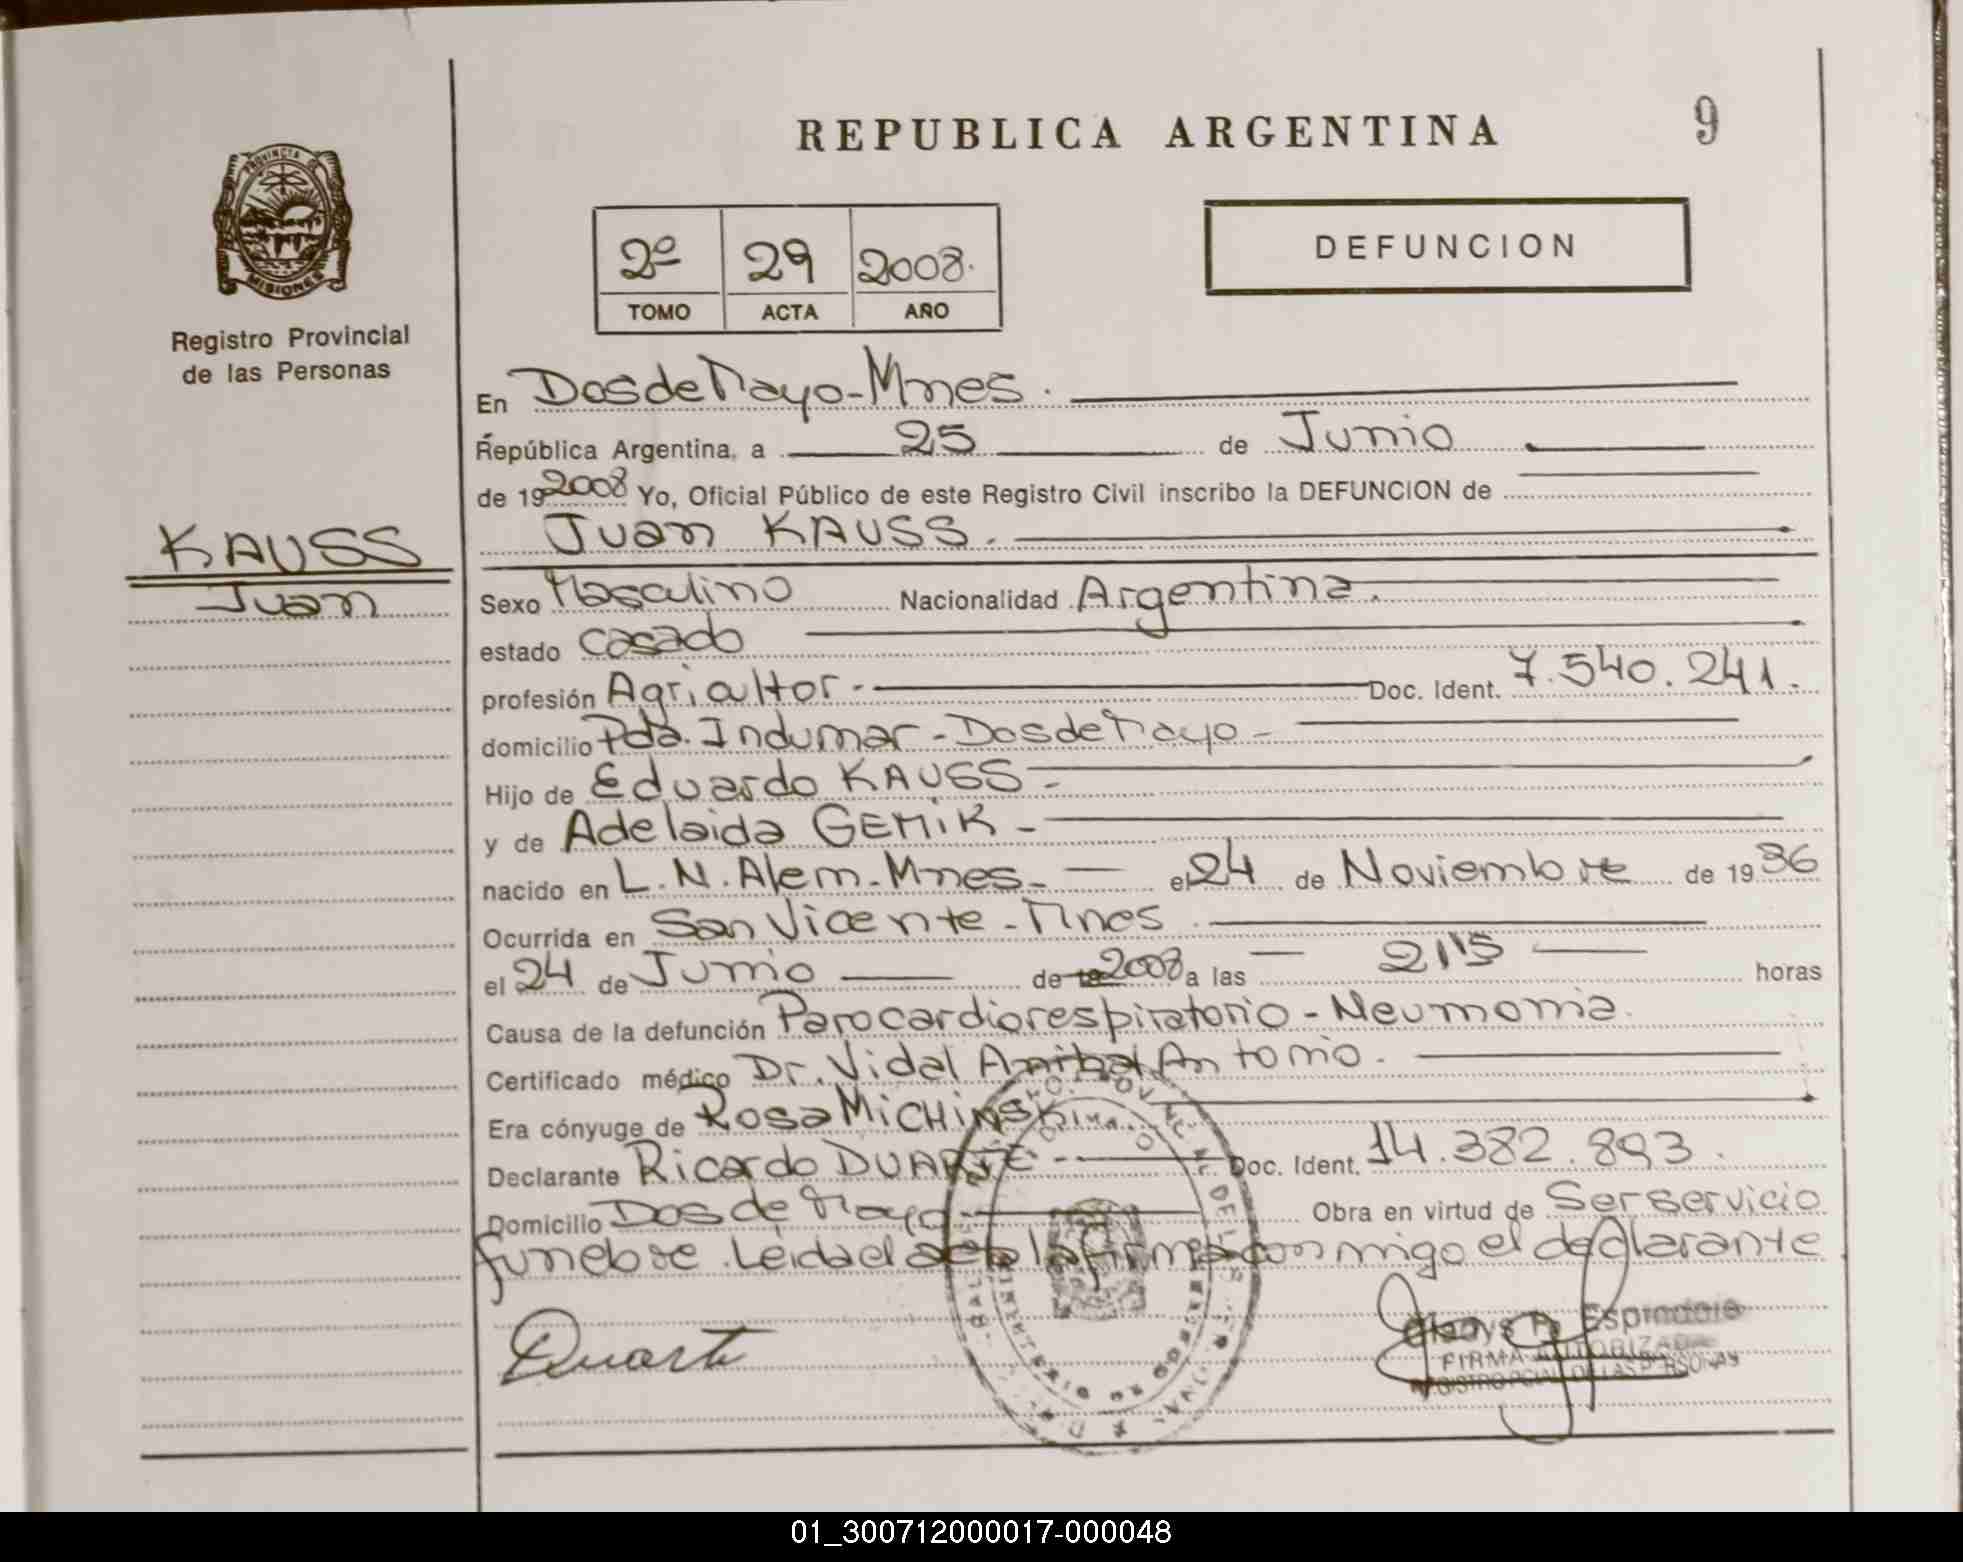 REPUBLICA ARGENTINA
9
PROVINCIA DE
MISIONES
Registro Provincial
de las Personas
2º 29 2008.
TOMO ACTA AÑO
DEFUNCION
KAUSS
Juan
En Dos de Mayo - Mnes.
República Argentina, a 25 de Junio
de 19 2008 Yo, Oficial Público de este Registro Civil inscribo la DEFUNCION de
Juan KAUSS.
Sexo Masculino Nacionalidad Argentina.
estado casado
profesión Agricultor - Doc. Ident. 7.540.241.
domicilio Pda. Indumar - Dos de Mayo -
Hijo de Eduardo KAUSS -
y de Adelaida GEMiK -
nacido en L.N. Alem - Mnes - el 24 de Noviembre de 19 36
Ocurrida en San Vicente - Mnes.
el 24 de Junio de 19 2008 a las 2115 horas
Causa de la defunción Parocardiorespiratorio - Neumonia.
Certificado médico Dr. Vidal Anibal Antonio.
Era cónyuge de Rosa MiCHiNSKi
Declarante Ricardo DUARTE - Doc. Ident. 14.382.893.
Domicilio Dos de Mayo - Obra en virtud de Ser servicio
funebre. Leida el acta la firma conmigo el declarante
Duarte
Gladys Espindola
FIRMA AUTORIZADA
REGISTRO PCIAL DE LAS PERSONAS
01_300712000017-000048